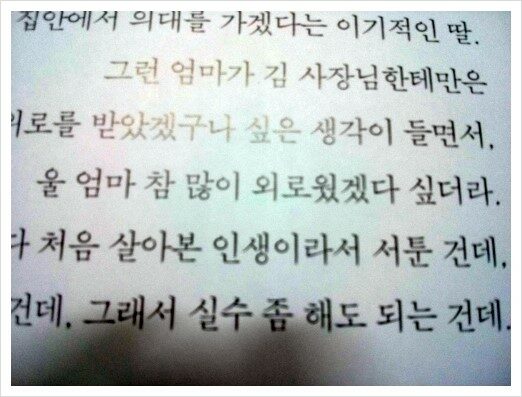 집안에서 의대를 가겠다는 이기적인 딸.
그런 엄마가 김 사장님한테만은
위로를 받았겠구나 싶은 생각이 들면서,
울 엄마 참 많이 외로웠겠다 싶더라.
다 처음 살아본 인생이라서 서툰 건데,
건데, 그래서 실수 좀 해도 되는 건데.